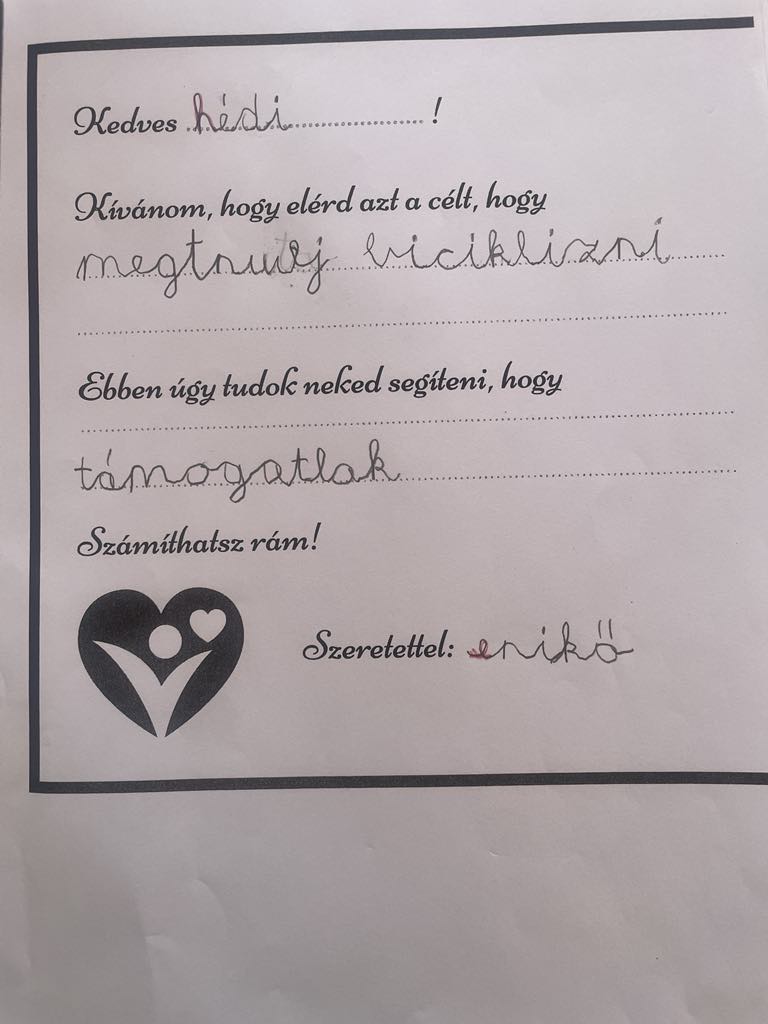 Kedves hédi !
Kívánom, hogy elérd azt a célt, hogy
biciklizni
Ebben úgy tudok neked segíteni, hogy
támogatlak
Számíthatsz rám!
Szeretettel: enikő